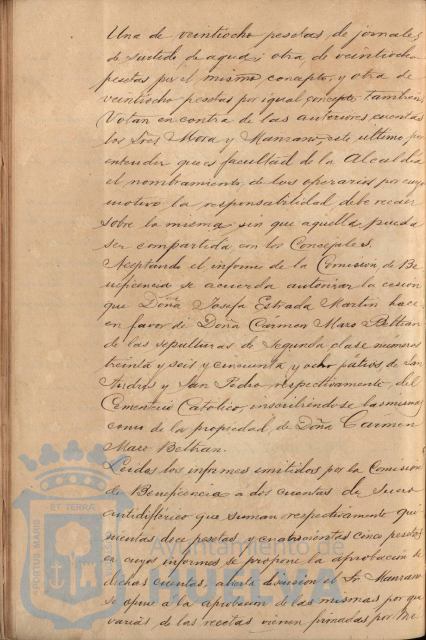 Una de veintiocho pesetas de jornales
de surtido de aguas; otra de veintiocho
pesetas por el mismo concepto, y otra de
veintiocho pesetas por igual concepto. También
Votan en contra de las anteriores cuentas
los Sres Mora y Manzano, este ultimo, por
entender que es facultad de la Alcaldia
el nombramiento de los operarios por cuyo
motivo la responsabilidad debe recaer
sobre la misma sin que aquella pueda
ser compartida con los Concejales.
Aceptando el informe de la Comisión de Be
neficencia se acuerda autorizar la cesion
que Doña Josefa Estrada Martin hace
en favor de Doña Cármen Maro Beltran
de las sepulturas de Segunda clase numeros
treinta y seis y cincuenta y ocho patios de San
Andres y San Pedro respectivamente, del
Cementerio Catolico, inscribiéndose las mismas
como de la propiedad de Doña Carmen
Maro Beltran.
Leidos los informes emitidos por la Comision
de Beneficencia a dos cuentas de suero
antidiftérico que suman respectivamente qui
nientas doce pesetas y cuatrocientas cinco pesetas
en cuyos informes se propone la aprobación de
dichas cuentas, abierta discusion el Sr. Manzano
se opone á la aprobacion de las mismas por que
varias de las recetas vienen firmadas por Me
PORTUS MARIS ET TERRÆ
Ayuntamiento de
HUELVA